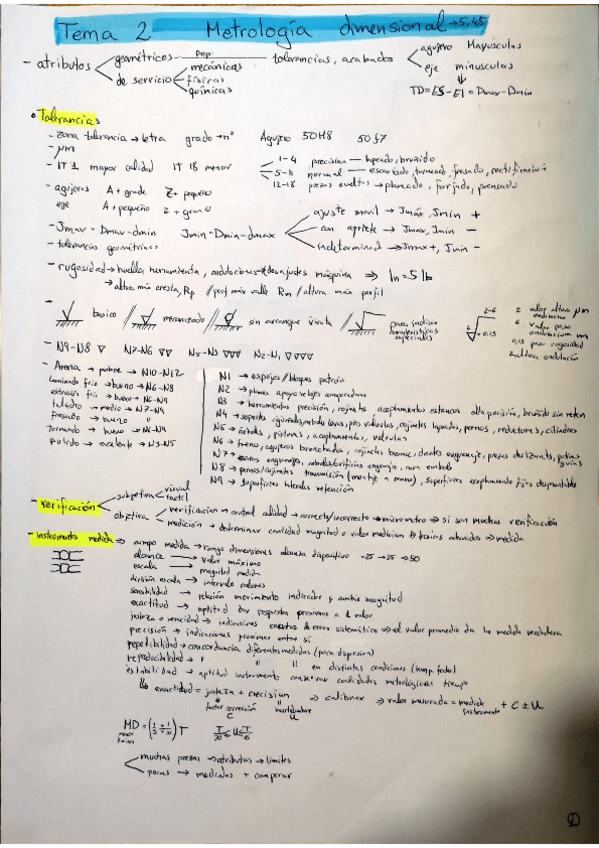 Tema 2 Metrología dimensional → 5,45
- atributos geométricos Prop. tolerancias, acabados agujero Mayusculas
de servicio mecánicas eje minusculas
físicas
químicas TD = ES - EI = Dmax - Dmin
• Tolerancias
- zona tolerancia → letra grado → nº Agujero 50H8 50g7
- μm
- IT 1 mayor calidad IT 18 menor 1-4 precision → lapeado, bruñido
5-11 normal → escariado, torneado, fresado, rectificacion
12-18 piezas sueltas → planeado, forjado, prensado
- agujeros A + grande Z + pequeño
eje A + pequeño z + grande
- Jmax = Dmax - dmin Jmin = Dmin - dmax ajuste movil → Jmax, Jmin +
con apriete → Jmax, Jmin -
indeterminado → Jmax +, Jmin -
- tolerancias geométricas
- rugosidad → huella herramienta, ondulaciones → desajustes máquina ⇒ ln = 5 lb
→ altura más cresta, Rp // prof más valle Rm / altura más perfil
- basico // mecanizado // sin arranque viruta // para indicar características especiales
2-6
0,13
2 valor altura μm ondulacion
6 valor paso ondulacion mm
0,13 rugosidad
- N9-N8 ▽ N7-N6 ▽▽ N5-N3 ▽▽▽ N2-N1 ▽▽▽▽
- Arena → pobre → N10-N12
laminado frio → bueno → N6-N8
extrusión frio → bueno → N6-N9
taladro → medio → N7-N9
fresado → bueno
Torneado → bueno → N6-N9
Pulido → excelente → N3-N5
N1 → espejos / bloques patrón
N2 → planos apoyo relojes comparadores
N3 → herramientas precisión, cojinetes, acoplamientos estancos alta presión, bruñido sin reten
N4 → soportes cigüeñales, arbol levas, pies valvulas, cojinetes lapeados, pernos, reductores, cilindros
N5 → árboles, pistones, acoplamientos, valvulas
N6 → freno, agujeros brochados, cojinetes bronce, dientes engranaje, piezas deslizantes, patines guias
N7 → engranajes, arboles/orificios engranaje, cara embolo
N8 → pernos/cojinetes transmisión (montaje a mano), superficies acoplamiento fijos desmontables
N9 → superficies laterales retención
- verificación subjetiva visual
tactil
objetiva verificacion → control calidad → correcto/incorrecto → micrometro → si son muchas verificación
medición → determinar cantidad magnitud o valor medicion → tecnicas adecuadas → medida
- instrumentos medida → campo medida → rango dimensiones alcanza dispositivo -25 → 25 → 50
alcance → valor máximo
escala → magnitud medida
división escala → intervalo valores
sensibilidad → relación movimiento indicador y cambio magnitud
exactitud → aptitud dar respuestas proximas a valor
justeza o veracidad → indicaciones exentas de error sistemático → el valor promedio da la medida verdadera
precisión → indicaciones proximas entre si
repetibilidad → concordancia diferentes medidas (poca dispersion)
reproducibilidad → " " " en distintas condiciones (temp, fecha)
estabilidad → aptitud instrumento conservar cualidades metrológicas tiempo
↳ exactitud = justeza + precision ⇒ calibrar ⇒ valor mesurado = medida instrumento + C ± U
factor corrección C incertidumbre U
MD = (1/5 ÷ 1/10) T T/20 ≤ U ≤ T/6
muchas piezas → atributos → limites
pocas → medidas + comparar